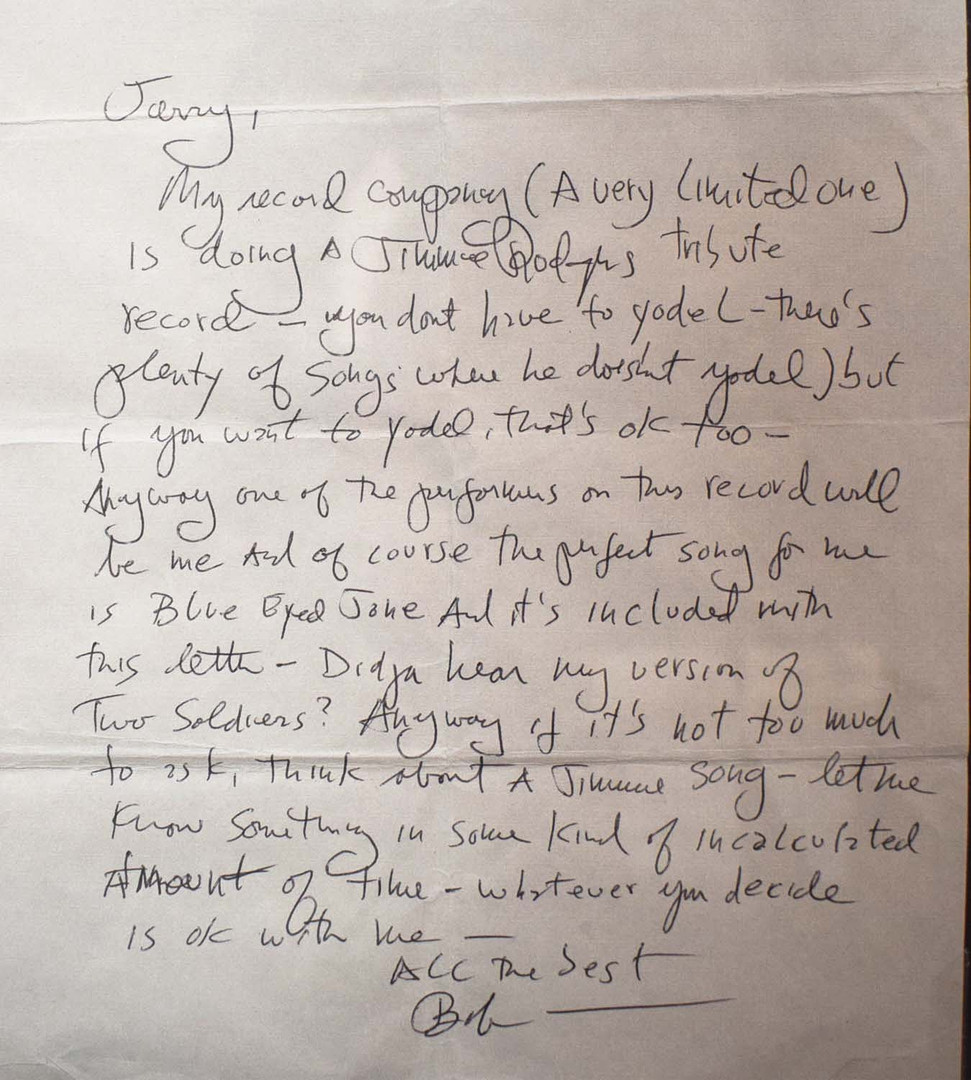 Jerry,
My record company (A very Limited one)
is doing A Jimmie Rodgers tribute
record – you dont have to yodel – there's
plenty of songs where he doesn't yodel) but
if you want to yodel, that's ok too –
Anyway one of the performers on this record will
be me And of course the perfect song for me
is Blue Eyed Jane And it's included with
this letter – Didja hear my version of
Two Soldiers? Anyway if it's not too much
to ask, think about A Jimmie song – let me
know something in some kind of incalculated
AMOUNT of time – whatever you decide
is ok with me —
All the best
Bob —